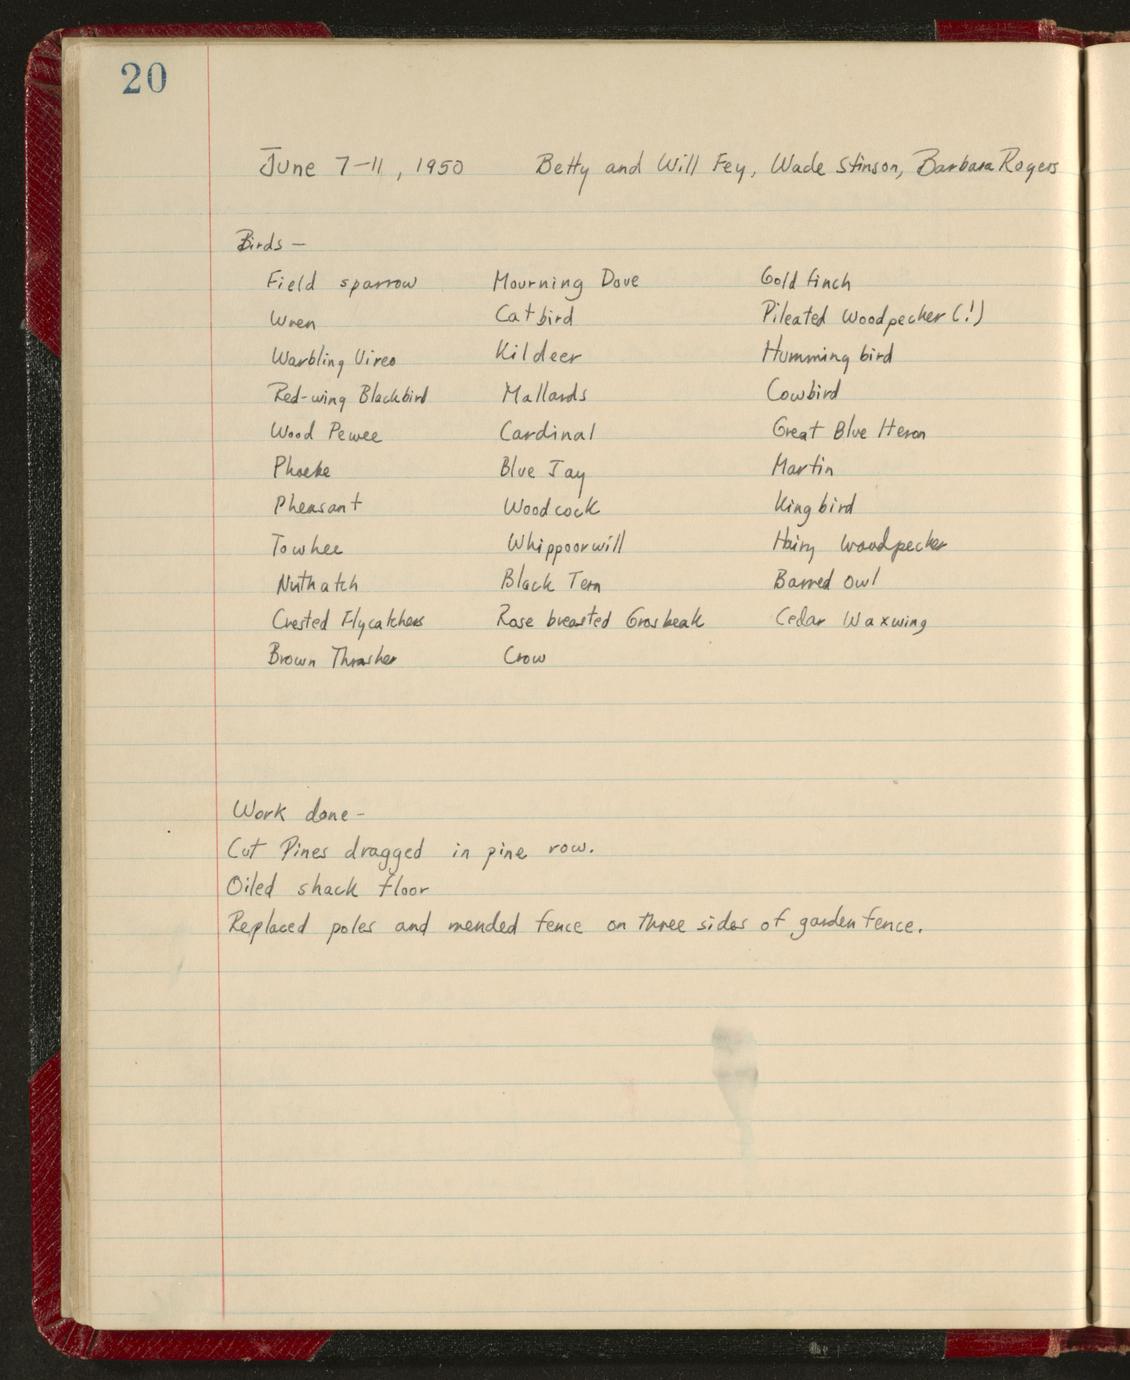 20
June 7-11, 1950 Betty and Will Fey, Wade Stinson, Barbara Rogers
Birds -
Field sparrow Mourning Dove Goldfinch
Wren Catbird Pileated Woodpecker (!)
Warbling Vireo Kildeer Humming bird
Red-wing Blackbird Mallards Cowbird
Wood Pewee Cardinal Great Blue Heron
Phoebe Blue Jay Martin
Pheasant Woodcock King bird
Towhee Whippoorwill Hairy Woodpecker
Nuthatch Black Tern Barred Owl
Crested Flycatchers Rose breasted Grosbeak Cedar Waxwing
Brown Thrasher Crow
Work done -
Cut Pines dragged in pine row.
Oiled shack floor
Replaced poles and mended fence on three sides of garden fence.